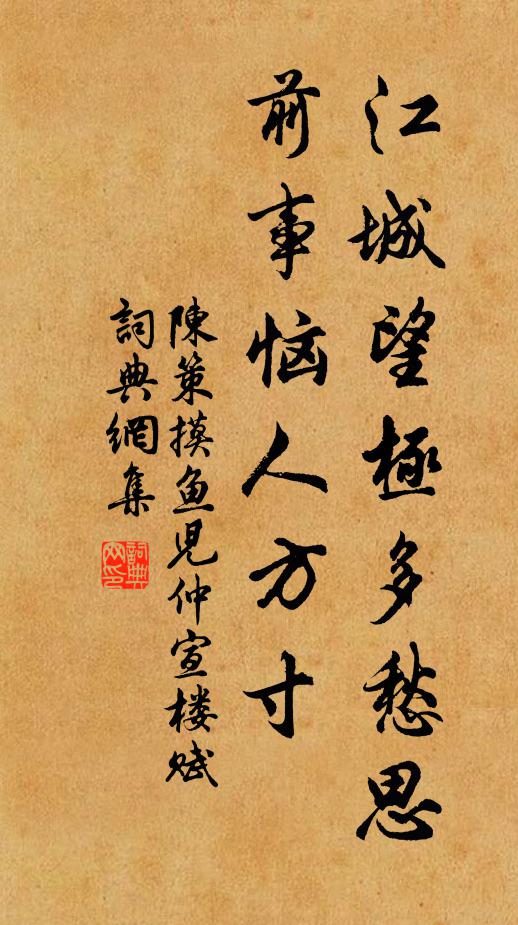 江城望極多愁思
前事恼人方寸
陳策摸鱼兒仲宣楼賦
詞典網集
詞典网印